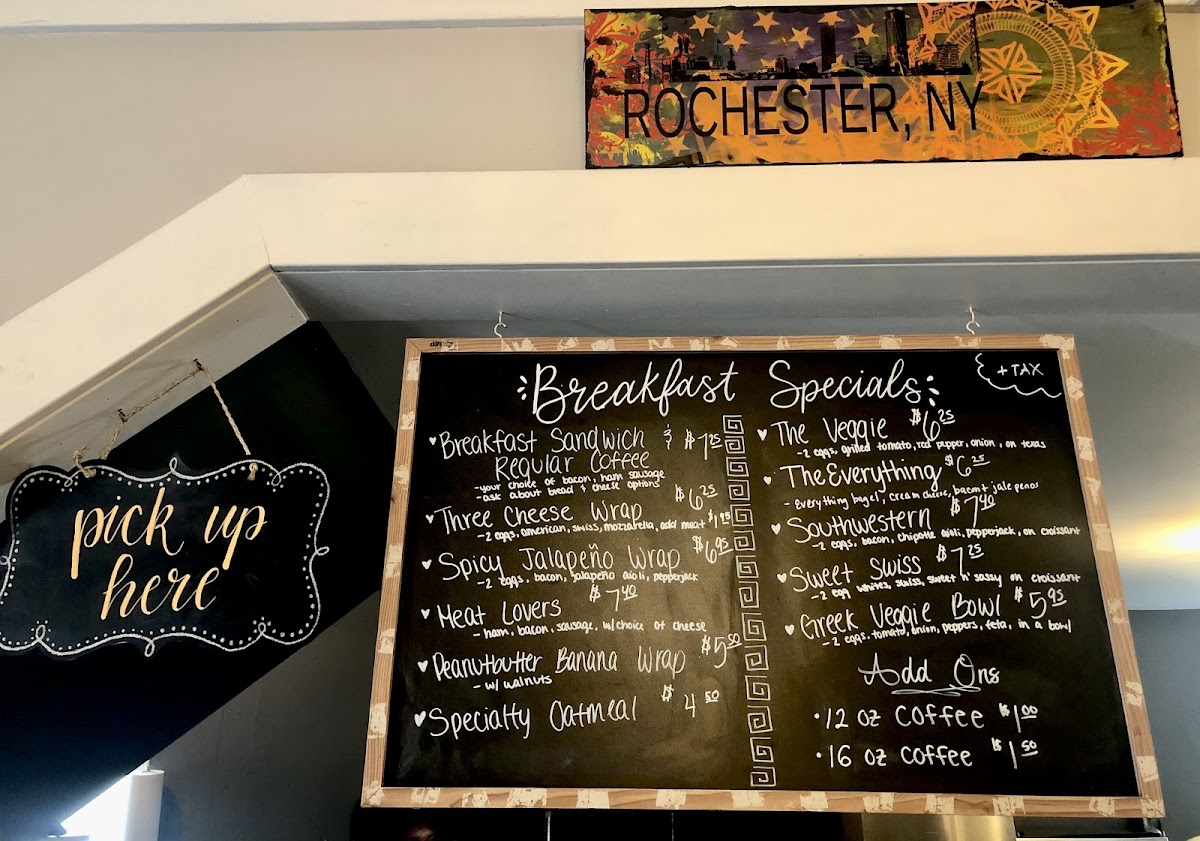 ROCHESTER, NY
pick up
here
Breakfast Specials
+ TAX
Breakfast Sandwich & $7.25
Regular Coffee
- your choice of bacon, ham sausage
- ask about bread & cheese options
Three Cheese Wrap $6.25
- 2 eggs, american, swiss, mozzarella, add meat
Spicy Jalapeño Wrap $6.95
- 2 eggs, bacon, jalapeño aioli, pepperjack
Meat Lovers $7.40
- ham, bacon, sausage, w/choice of cheese
Peanutbutter Banana Wrap $5.50
- w/ walnuts
Specialty Oatmeal $4.50
The Veggie $6.25
- 2 eggs, grilled tomato, red pepper, onion, on texas
The Everything $6.25
- Everything bagel, cream cheese, bacon + jalepenos
Southwestern $7.40
- 2 eggs, bacon, chipotle aioli, pepperjack, on croissant
Sweet Swiss $7.25
- 2 egg whites, swiss, sweet n' sassy on croissant
Greek Veggie Bowl $5.95
- 2 eggs, tomato, onion, peppers, feta, in a bowl
Add Ons
• 12 oz coffee $1.00
• 16 oz coffee $1.50